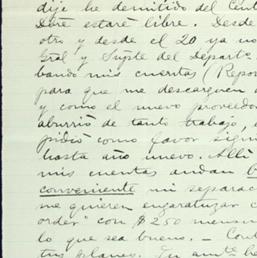 dije he demitido del Cent
Dbre estaré libre. Desde
otro, y desde el 20 ya no
Gral y Supte del Departo
bando mis cuentas (Repor
para que me descarguen
y como el nuevo proveedor
aburrió de tanto trabajo,
pidió como favor
hasta año nuevo. Allí
mis cuentas andan
conveniente mi separac
me quieren engaratuzar c
order" con $250 mensu
lo que sea bueno. — Cont
tus planes.